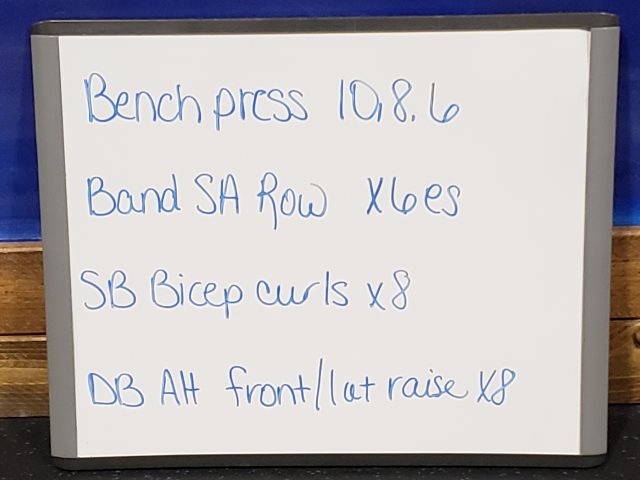 Bench press 10,8.6
Band SA Row x6es
SB Bicep curls x8
DB Alt front/lat raise x8